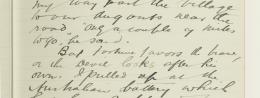 my way past the village
to our dugouts near the
road, only a couple of miles
to go, he said.
But fortune favors the brave,
or the Devil looks after his
own. I pulled up at the
Australian battery which